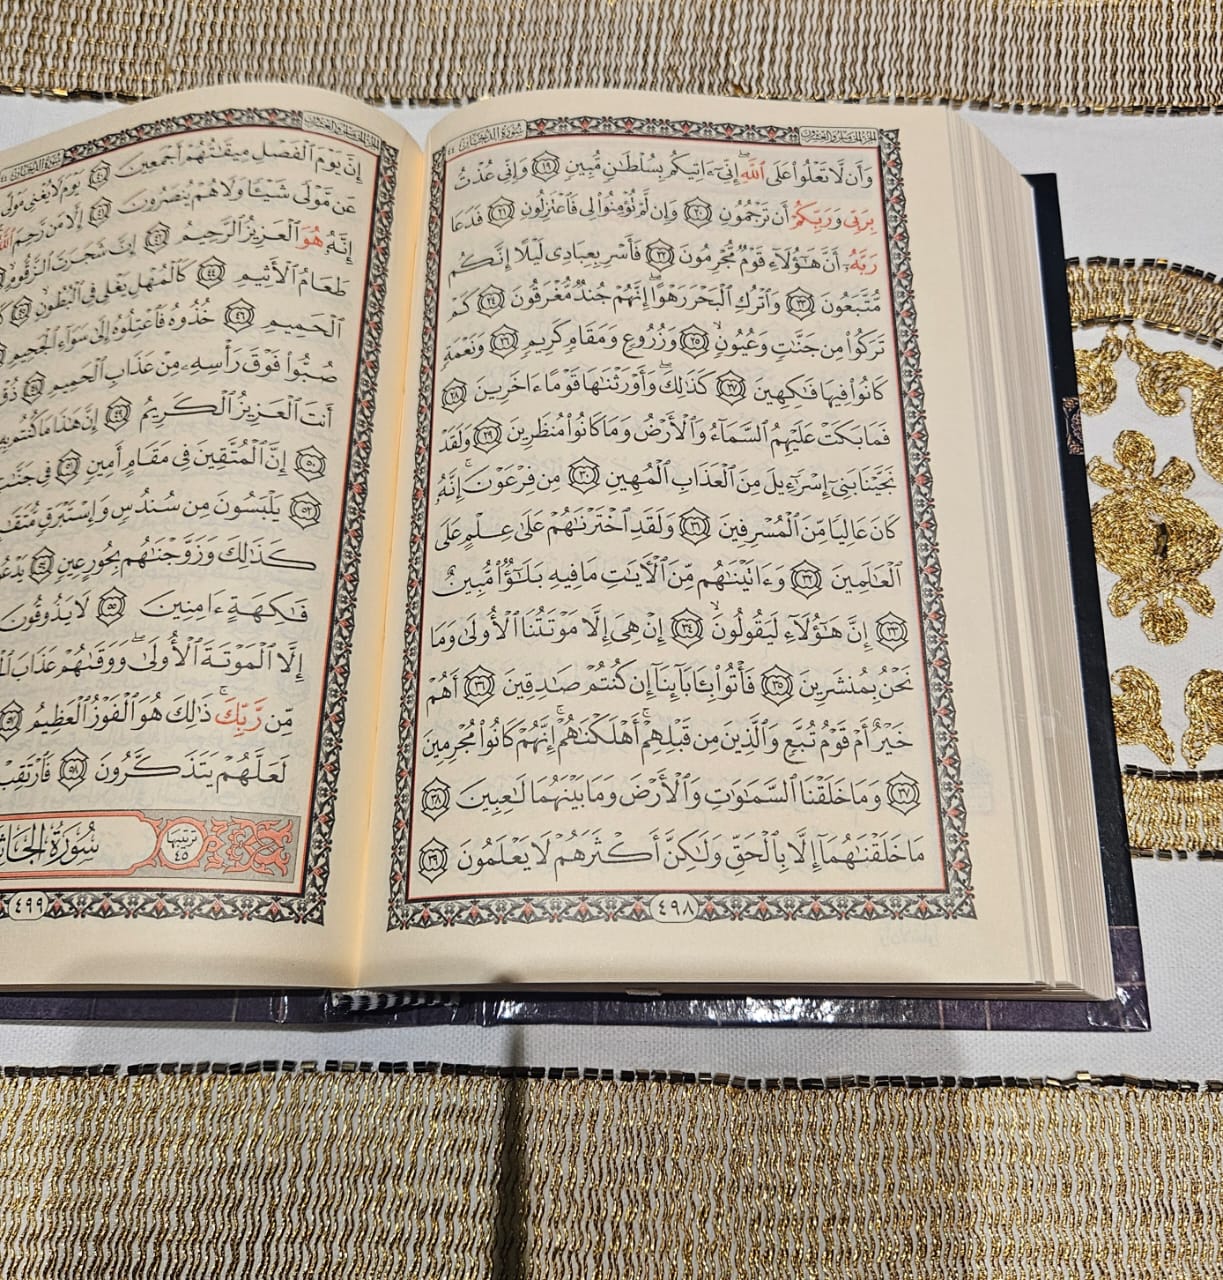 سُورَةُ الدُّخَانِ ٤٤
وَأَن لَّا تَعْلُوا۟ عَلَى ٱللَّهِ ۖ إِنِّىٓ ءَاتِيكُم بِسُلْطَـٰنٍ مُّبِينٍ ١٩ وَإِنِّى عُذْتُ
بِرَبِّى وَرَبِّكُمْ أَن تَرْجُمُونِ ٢٠ وَإِن لَّمْ تُؤْمِنُوا۟ لِى فَٱعْتَزِلُونِ ٢١ فَدَعَا
رَبَّهُۥٓ أَنَّ هَـٰٓؤُلَآءِ قَوْمٌ مُّجْرِمُونَ ٢٢ فَأَسْرِ بِعِبَادِى لَيْلًا إِنَّكُم
مُّتَّبَعُونَ ٢٣ وَٱتْرُكِ ٱلْبَحْرَ رَهْوًا ۖ إِنَّهُمْ جُندٌ مُّغْرَقُونَ ٢٤ كَمْ
تَرَكُوا۟ مِن جَنَّـٰتٍ وَعُيُونٍ ٢٥ وَزُرُوعٍ وَمَقَامٍ كَرِيمٍ ٢٦ وَنَعْمَةٍ
كَانُوا۟ فِيهَا فَـٰكِهِينَ ٢٧ كَذَٰلِكَ ۖ وَأَوْرَثْنَـٰهَا قَوْمًا ءَاخَرِينَ ٢٨
فَمَا بَكَتْ عَلَيْهِمُ ٱلسَّمَآءُ وَٱلْأَرْضُ وَمَا كَانُوا۟ مُنظَرِينَ ٢٩ وَلَقَدْ
نَجَّيْنَا بَنِىٓ إِسْرَٰٓءِيلَ مِنَ ٱلْعَذَابِ ٱلْمُهِينِ ٣٠ مِن فِرْعَوْنَ ۚ إِنَّهُۥ
كَانَ عَالِيًا مِّنَ ٱلْمُسْرِفِينَ ٣١ وَلَقَدِ ٱخْتَرْنَـٰهُمْ عَلَىٰ عِلْمٍ عَلَى
ٱلْعَـٰلَمِينَ ٣٢ وَءَاتَيْنَـٰهُم مِّنَ ٱلْـَٔايَـٰتِ مَا فِيهِ بَلَـٰٓؤٌا۟ مُّبِينٌ
٣٣ إِنَّ هَـٰٓؤُلَآءِ لَيَقُولُونَ ٣٤ إِنْ هِىَ إِلَّا مَوْتَتُنَا ٱلْأُولَىٰ وَمَا
نَحْنُ بِمُنشَرِينَ ٣٥ فَأْتُوا۟ بِـَٔابَآئِنَآ إِن كُنتُمْ صَـٰدِقِينَ ٣٦ أَهُمْ
خَيْرٌ أَمْ قَوْمُ تُبَّعٍ وَٱلَّذِينَ مِن قَبْلِهِمْ ۚ أَهْلَكْنَـٰهُمْ ۖ إِنَّهُمْ كَانُوا۟ مُجْرِمِينَ
٣٧ وَمَا خَلَقْنَا ٱلسَّمَـٰوَٰتِ وَٱلْأَرْضَ وَمَا بَيْنَهُمَا لَـٰعِبِينَ ٣٨
مَا خَلَقْنَـٰهُمَآ إِلَّا بِٱلْحَقِّ وَلَـٰكِنَّ أَكْثَرَهُمْ لَا يَعْلَمُونَ ٣٩
٤٩٨
إِنَّ يَوْمَ ٱلْفَصْلِ مِيقَـٰتُهُمْ أَجْمَعِينَ ٤٠ يَوْمَ لَا يُغْنِى مَوْلًى
عَن مَّوْلًى شَيْـًٔا وَلَا هُمْ يُنصَرُونَ ٤١ إِلَّا مَن رَّحِمَ ٱللَّهُ
إِنَّهُۥ هُوَ ٱلْعَزِيزُ ٱلرَّحِيمُ ٤٢ إِنَّ شَجَرَتَ ٱلزَّقُّومِ
طَعَامُ ٱلْأَثِيمِ ٤٤ كَٱلْمُهْلِ يَغْلِى فِى ٱلْبُطُونِ ٤٥
ٱلْحَمِيمِ ٤٦ خُذُوهُ فَٱعْتِلُوهُ إِلَىٰ سَوَآءِ ٱلْجَحِيمِ
صُبُّوا۟ فَوْقَ رَأْسِهِۦ مِنْ عَذَابِ ٱلْحَمِيمِ ٤٨ ذُقْ
أَنتَ ٱلْعَزِيزُ ٱلْكَرِيمُ ٤٩ إِنَّ هَـٰذَا مَا كُنتُم بِهِۦ
٥٠ إِنَّ ٱلْمُتَّقِينَ فِى مَقَامٍ أَمِينٍ ٥١ فِى
٥٢ يَلْبَسُونَ مِن سُندُسٍ وَإِسْتَبْرَقٍ
كَذَٰلِكَ وَزَوَّجْنَـٰهُم بِحُورٍ عِينٍ ٥٤
فَـٰكِهَةٍ ءَامِنِينَ ٥٥ لَا يَذُوقُونَ
إِلَّا ٱلْمَوْتَةَ ٱلْأُولَىٰ ۖ وَوَقَىٰهُمْ عَذَابَ
مِّن رَّبِّكَ ۚ ذَٰلِكَ هُوَ ٱلْفَوْزُ ٱلْعَظِيمُ ٥٧
لَعَلَّهُمْ يَتَذَكَّرُونَ ٥٨
تَرْتِيبُهَا ٤٥
سُورَةُ
٤٩٩